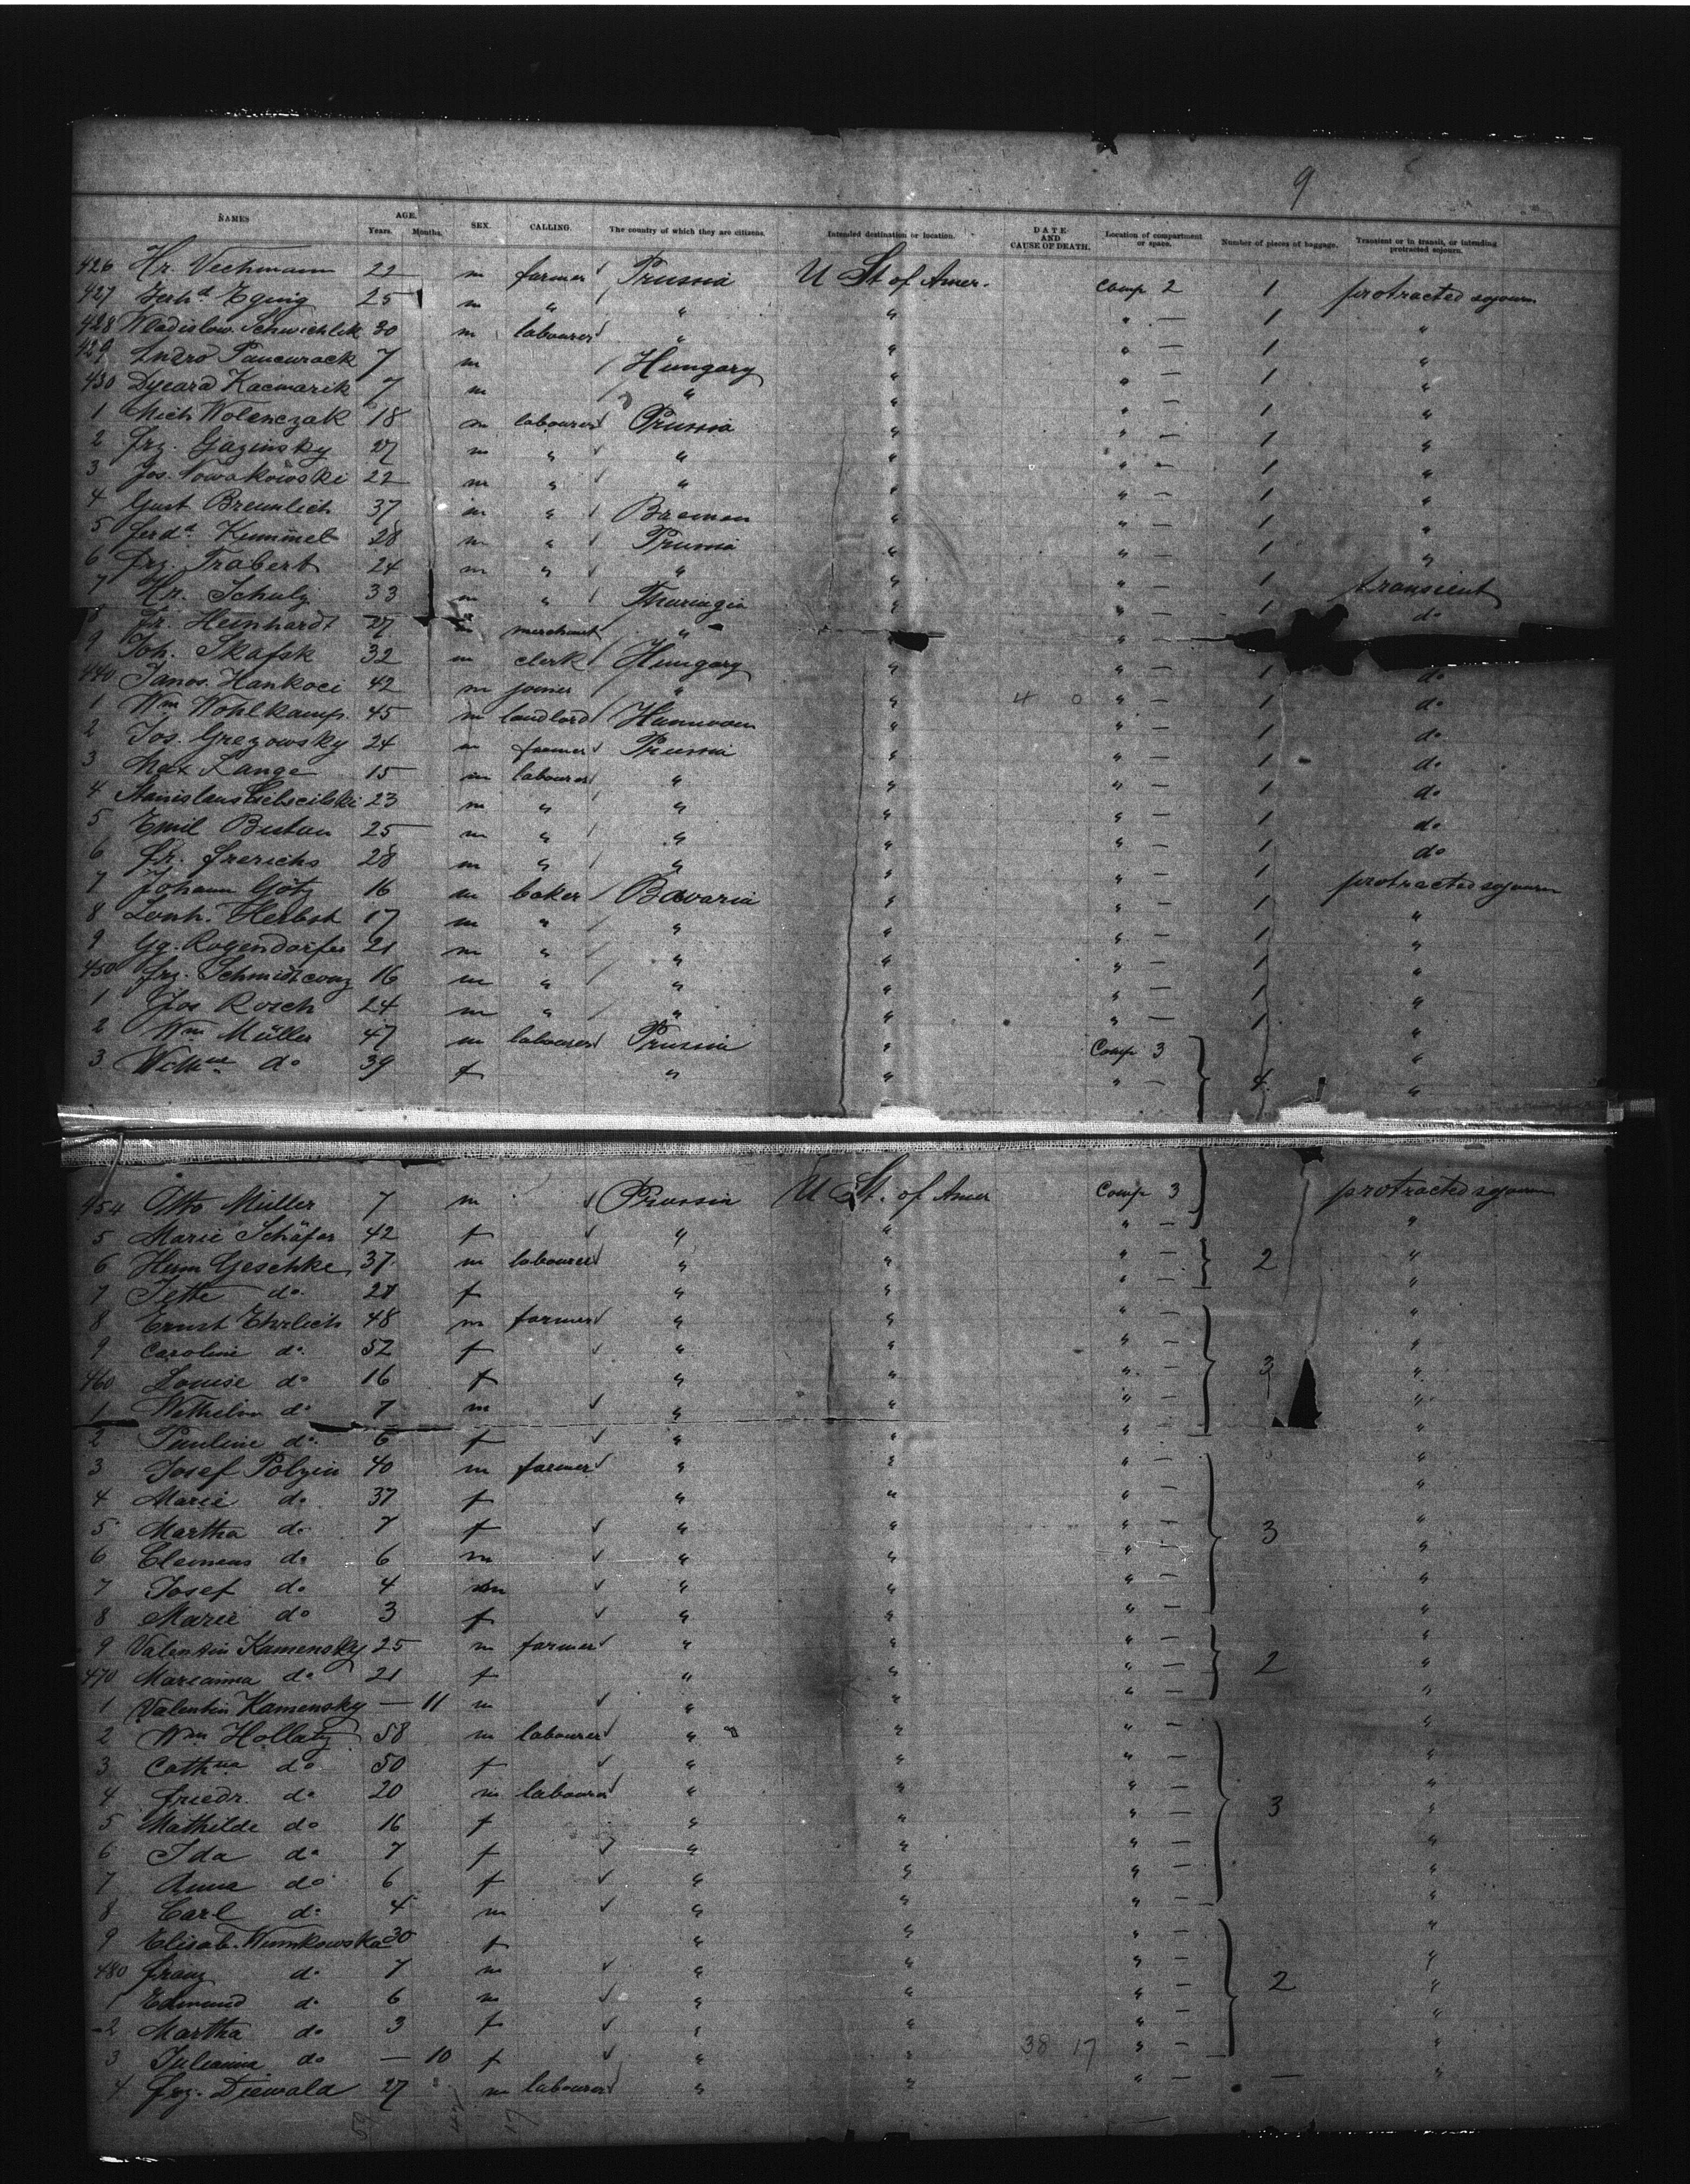 9
NAMES AGE. Years. Months. SEX. CALLING. The country of which they are citizens. Intended destination or location. DATE AND CAUSE OF DEATH. Location of compartment or space. Number of pieces of baggage. Transient or in transit, or intending protracted sojourn.
426 Hr. Vechmann 22 m farmer Prussia U St of Amer. Comp 2 1 protracted sojourn
427 Gerhd Eguig 25 m " " " " — 1 "
428 Wladislow Schwichlik 30 m labourer " " " — 1 "
429 Andro Pancurack 7 m Hungary " " — 1 "
430 Dyeara Kacmarik 7 m " " " — 1 "
1 Mich Wolenczak 18 m labourer Prussia " " — 1 "
2 Frz. Gazinsky 27 m " " " " — 1 "
3 Jos. Nowakowski 22 m " " " " — 1 "
4 Gust Breunlich 37 m " Bremen " " — 1 "
5 Ferdd Kummel 28 m " Prussia " " — 1 "
6 Frz. Trabert 24 m " " " " — 1 transient
7 Hr. Schulz 33 m " Thuringia " " — 1 do
8 Fr. Heinhardt 27 m merchant " " —
9 Joh. Skafsk 32 m clerk Hungary " " — 1 do
440 Janos Hankoci 42 m joiner " " 4 0 " — 1 do
1 Wm Wohlkamp 45 m landlord Hannover " " — 1 do
2 Jos. Grezowsky 24 m farmer Prussia " " — 1 do
3 Max Lange 15 m labourer " " " — 1 do
4 Stanislaus 23 m " " " " — 1 do
5 Emil Bustan 25 m " " " " — 1 do
6 Fr. Frerichs 28 m " " " " — 1 protracted sojourn
7 Johann Götz 16 m baker Bavaria " " — 1 "
8 Lonh. Herbst 17 m " " " " — 1 "
9 Gg. Rogendorfer 21 m " " " " — 1 "
450 Frz. Schmidtconz 16 m " " " " — 1 "
1 Jos Rosch 24 m " " " " — 1 "
2 Wm Müller 47 m labourer Prussia " Comp 3 "
3 Wilhne do 39 f " " " — 4 "
454 Otto Müller 7 m Prussia U St. of Amer Comp 3 protracted sojourn
5 Marie Schäfer 42 f " " " — "
6 Herm Geschke 37 m labourer " " " — 2 "
7 Jette do 27 f " " " — "
8 Ernst Ehrlich 48 m farmer " " " — "
9 Caroline do 52 f " " " — "
460 Louise do 16 f " " " — 3 "
1 Wilhelm do 7 m " " " — "
2 Pauline do 6 f " " " — "
3 Josef Polzin 40 m farmer " " " — "
4 Marie do 37 f " " " — "
5 Martha do 7 f " " " — 3 "
6 Clemens do 6 m " " " — "
7 Josef do 4 m " " " — "
8 Marie do 3 f " " " — "
9 Valentin Kamensky 25 m farmer " " " — "
470 Marianna do 21 f " " " — 2 "
1 Valentin Kamensky — 11 m " " " — "
2 Wm Hollatz 58 m labourer " " " — "
3 Cathna do 50 f " " " — "
4 Friedr. do 20 m labourer " " " — "
5 Mathilde do 16 f " " " — 3 "
6 Ida do 7 f " " " — "
7 Anna do 6 f " " " — "
8 Carl do 4 m " " " — "
9 Elisab. Wumkowska 30 f " " " — "
480 Franz do 7 m " " " — "
1 Edmund do 6 m " " " — 2 "
2 Martha do 3 f " " " — "
3 Julianna do — 10 f " " 38 17 " — "
4 Frz. Diewald 27 m labourer " " " — — "